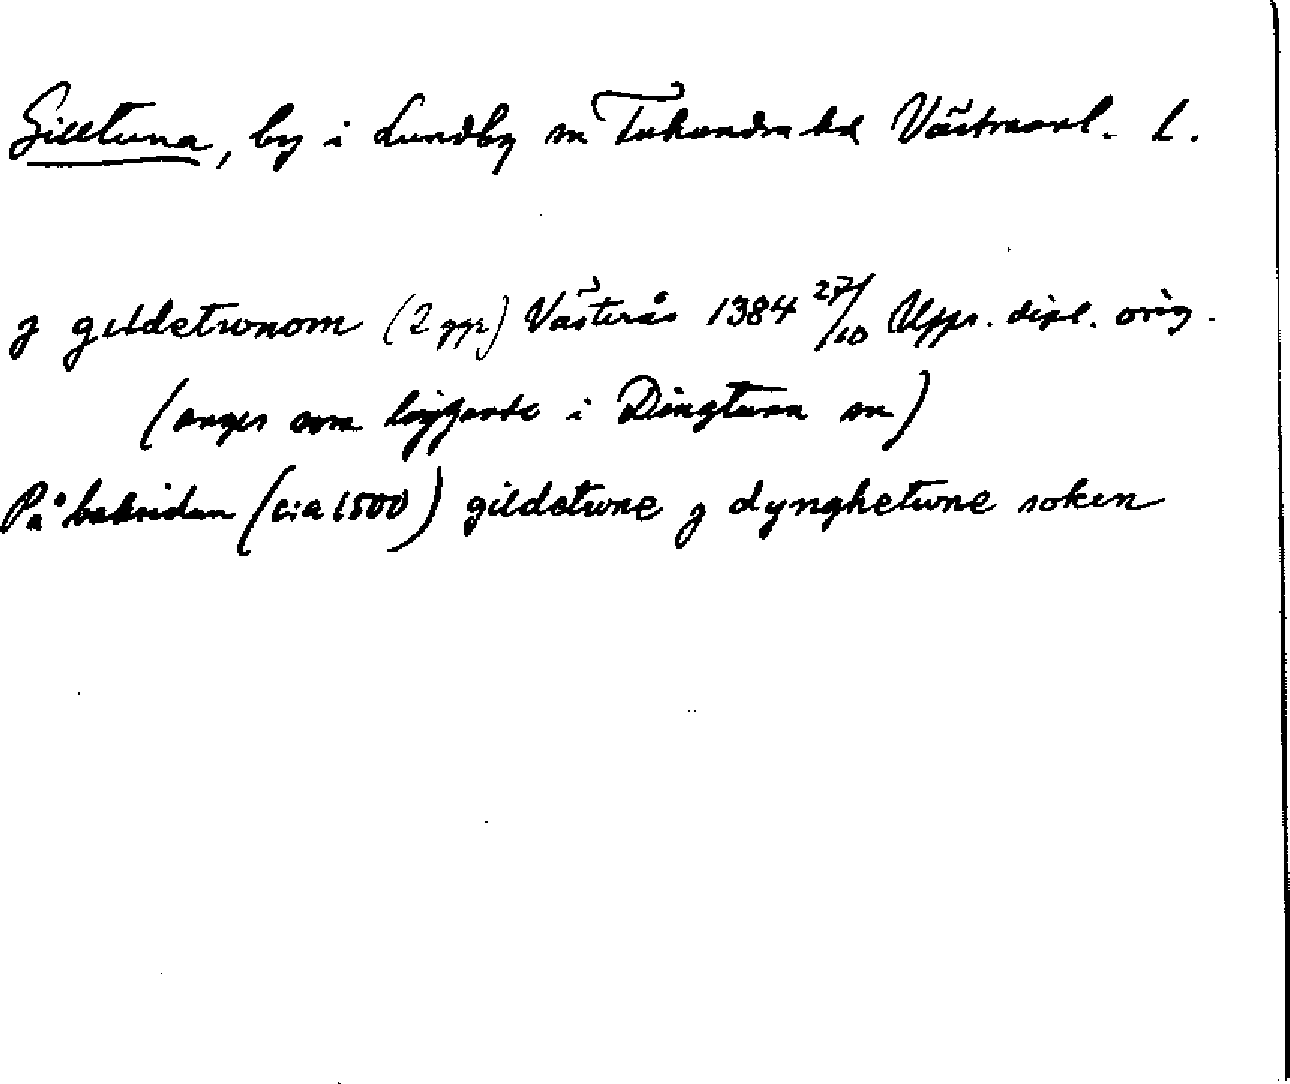 Gilltuna, by i Lundby sn Tuhundra hd Västmanl. L.
j gildetwnom (2 ggr) Västerås 1384 27/10 Upps. dipl. orig.
(anges som liggande i Dingtuna sn)
På baksidan (c:a 1500) gildetwne j dynghetwne soken